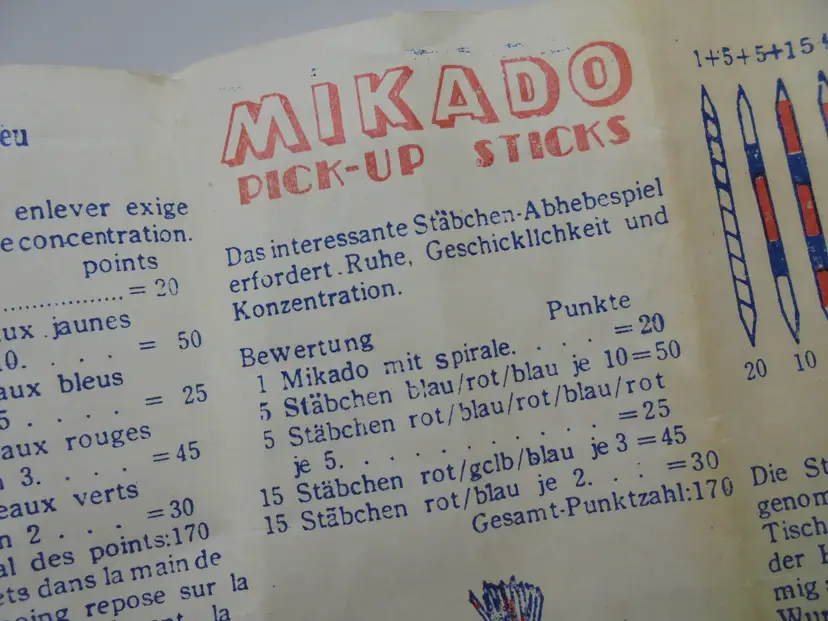 eu
enlever exige
e concentration.
points
= 20
ux jaunes
0. . . . . = 50
aux bleus
5 . . . . = 25
aux rouges
n 3. . . . =45
eaux verts
n 2 . . . =30
al des points:170
ets dans la main de
oing repose sur la
la
MIKADO
PICK-UP STICKS
Das interessante Stäbchen-Abhebespiel
erfordert.Ruhe, Geschicklichkeit und
Konzentration.
Bewertung Punkte
1 Mikado mit spirale. . . . =20
5 Stäbchen blau/rot/blau je 10=50
5 Stäbchen rot/blau/rot/blau/rot
je 5. . . . . . . . . . . =25
15 Stäbchen rot/gclb/blau je 3 =45
15 Stäbchen rot/blau je 2. . : =30
Gesamt-Punktzahl:170
1+5+5+15
20 10
Die St
genom
Tisch
der H
mig
Wur